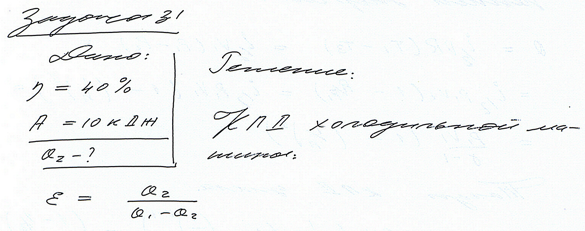 Задача 3!
Дано:
η = 40 %
A = 10 кДж
Q₂ - ?
Решение:
КПД холодильной ма-
шины:
ε = Q₂ / Q₁ - Q₂